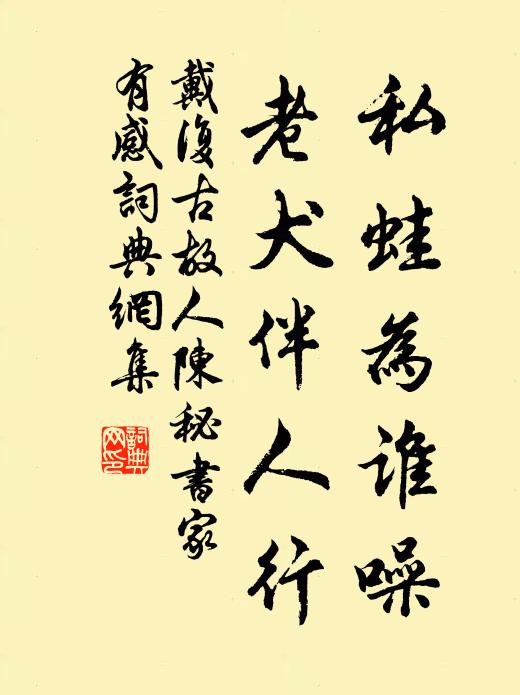 私蛙為誰噪
老犬伴人行
戴復古故人陳秘書家
有感詞典網集
詞典
網印